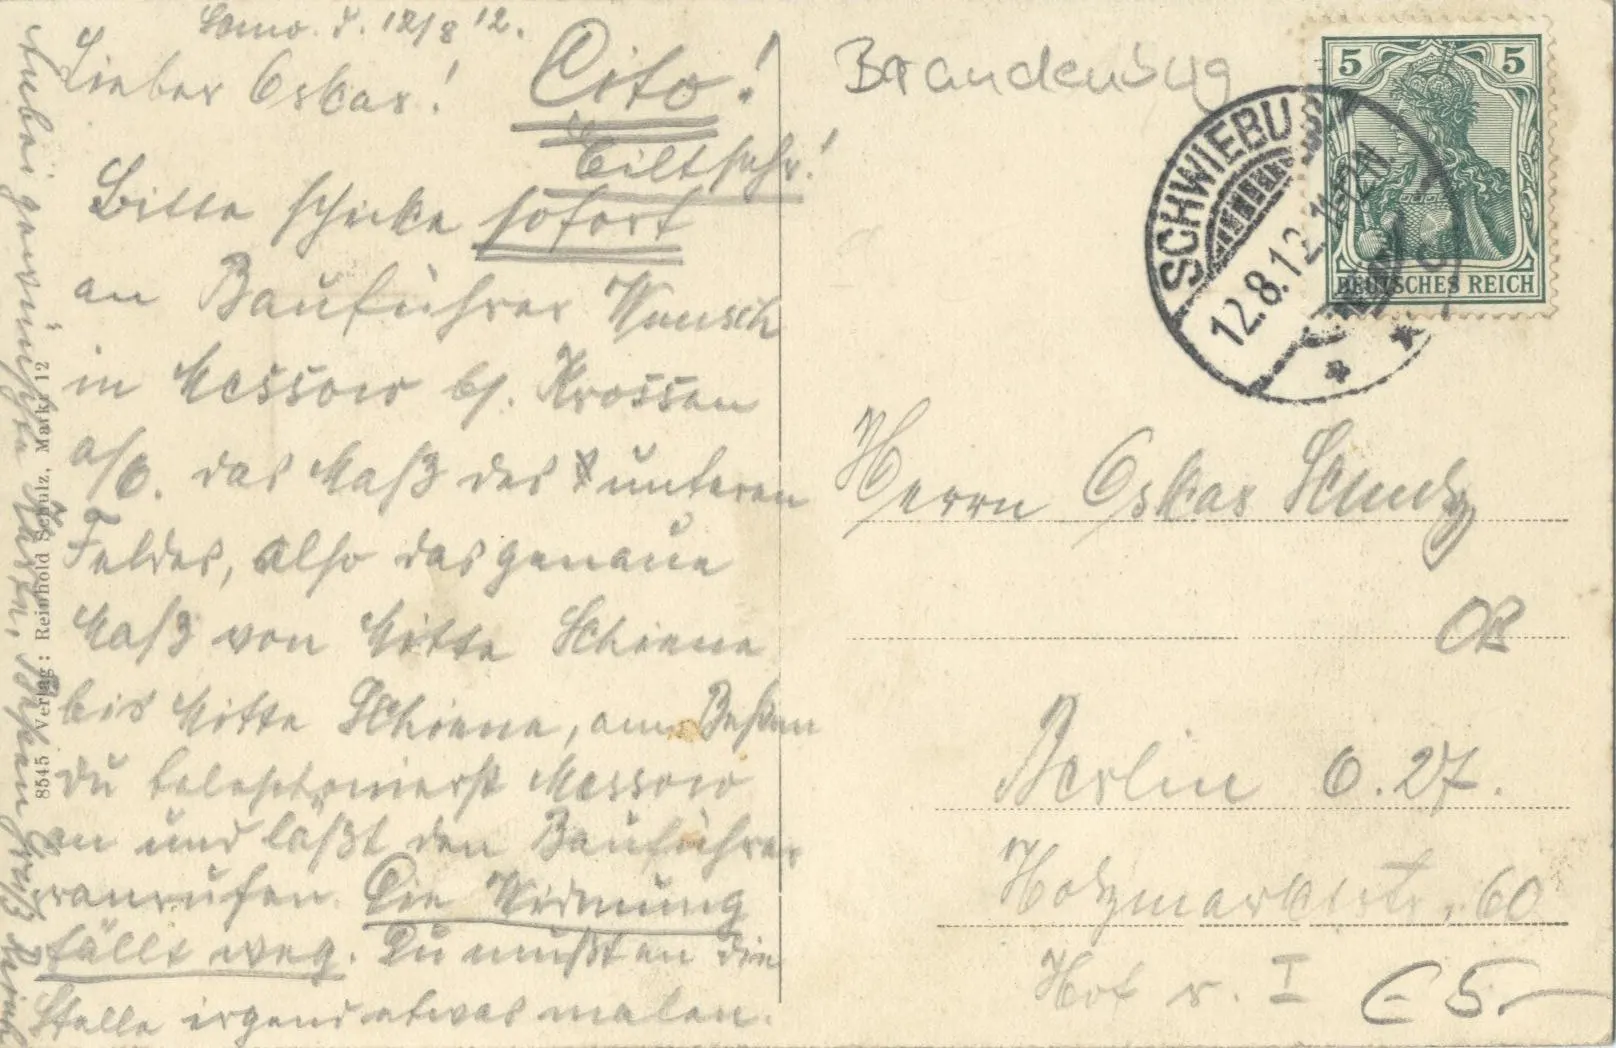 d. 12/8 12.
Lieber Oskar!
Cito!
Eilt sehr!
Bitte schicke sofort
an Bauführer Wunsch
in Messow b/. Krossen
a/O. das Maß des unteren
Feldes, also das genaue
Maß von Mitte Schiene
bis Mitte Schiene, am Besten
Du telephonierst Messow
an und läßt den Bauführer
ranrufen. Die Widmung
fällt weg. Du mußt an die
Stelle irgend etwas malen.
Anbei gewünschte Karten, Gruß
8545 Verlag: Reinhold Schulz, Markt 12
Brandenburg
SCHWIEBUS
12.8.12. 11-12N.
5 5
DEUTSCHES REICH
Herrn Oskar
Berlin O. 27.
Holzmarktstr. 60
Hof r. I
5-